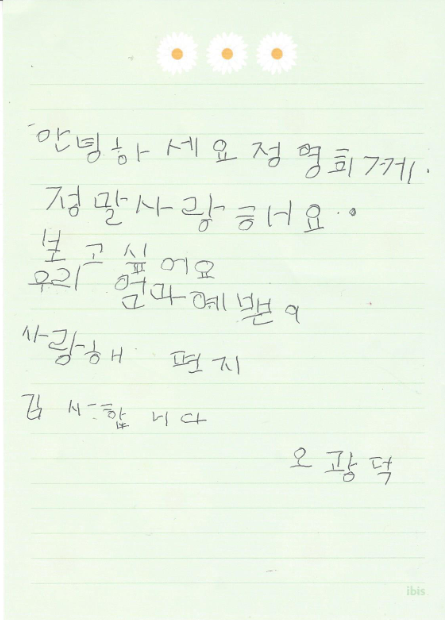 안녕하세요 정영희께.
정말사랑해요..
보고싶어요
우리 엄마예뻐
사랑해 편지
감사합니다
오광덕
ibis